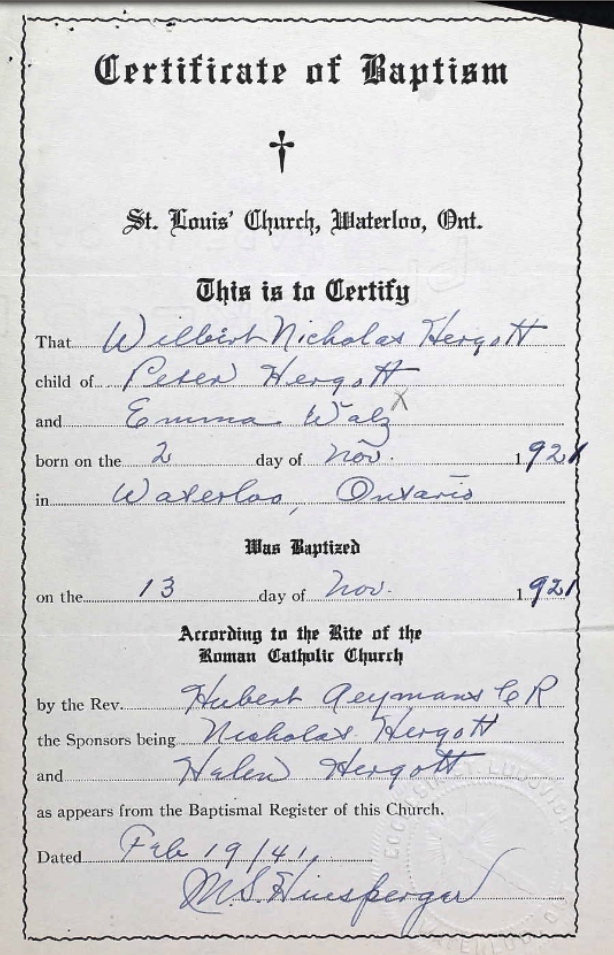 Certificate of Baptism
†
St. Louis' Church, Waterloo, Ont.
This is to Certify
That Wilbert Nicholas Hergott
child of Peter Hergott
and Emma Walz x
born on the 2 day of Nov. 1921
in Waterloo, Ontario
Was Baptized
on the 13 day of Nov. 1921
According to the Rite of the
Roman Catholic Church
by the Rev. Hubert Aeymans C R
the Sponsors being Nicholas Hergott
and Helen Hergott
as appears from the Baptismal Register of this Church.
Dated Feb 19/41
M.S. Hinsperger
WATERLOO